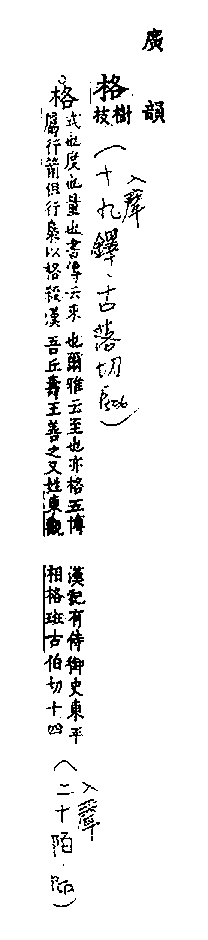 廣韻
格
樹
枝
(入聲
十九鐸·古落切
格
式也度也量也書傳云來也爾雅云至也亦格五博
屬行箭但行梟以格殺漢吾丘壽王善之又姓東觀
漢記有侍御史東平
相格班古伯切十四
(入聲
二十陌·